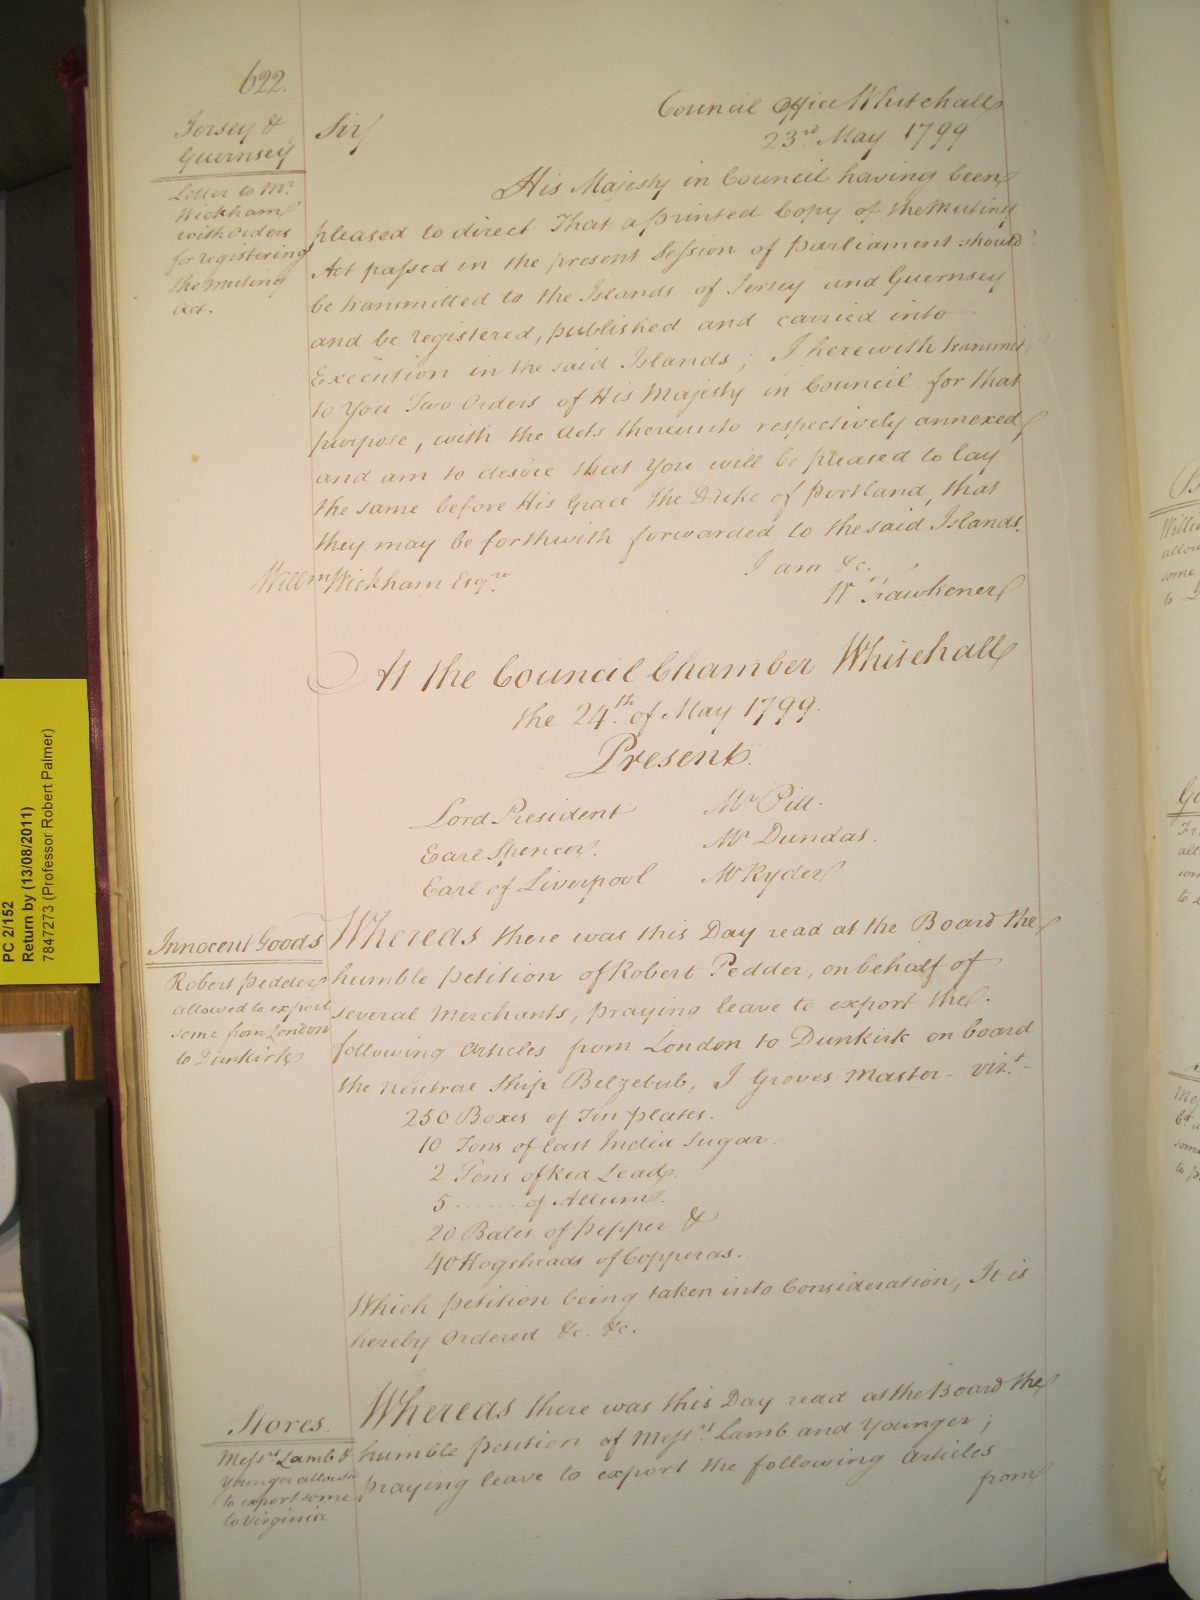 622.
Jersey &
Guernsey
Letter to Mr.
Wickham
with Orders
for registering
the Mutiny
Act.
Council Office Whitehall
23rd. May 1799
Sir
His Majesty in Council having been
pleased to direct That a printed Copy of the Mutiny
Act passed in the present Session of Parliament should
be transmitted to the Islands of Jersey and Guernsey
and be registered, published and carried into
Execution in the said Islands; I herewith transmit
to You Two Orders of His Majesty in Council for that
purpose, with the Acts thereunto respectively annexed
and am to desire that You will be pleased to lay
the same before His Grace The Duke of Portland, that
they may be forthwith forwarded to the said Islands.
I am &c.
Willm Wickham Esqre.
W Fawkener
At the Council Chamber Whitehall
the 24th. of May 1799.
Present.
Lord President Mr Pitt.
Earl Spencer. Mr. Dundas.
Earl of Liverpool Mr Ryder
Innocent Goods
Robert Pedder
allowed to export
some from London
to Dunkirk
Whereas there was this Day read at the Board the
humble petition of Robert Pedder, on behalf of
several Merchants, praying leave to export the
following Articles from London to Dunkirk on board
the neutral Ship Belzebub, J. Groves Master - vizt. -
250 Boxes of Tin plates.
10 Tons of East India Sugar.
2 Tons of Red Lead.
5 ...... of Allum.
20 Bales of Pepper &
40 Hogsheads of Copperas.
Which petition being taken into Consideration, It is
hereby Ordered &c. &c.
Stores.
Messrs. Lamb &
Younger allowed
to export some
to Virginia
Whereas there was this Day read at the Board the
humble Petition of Messrs. Lamb and Younger;
praying leave to export the following Articles
from
PC 2/152
Return by (13/08/2011)
7847273 (Professor Robert Palmer)